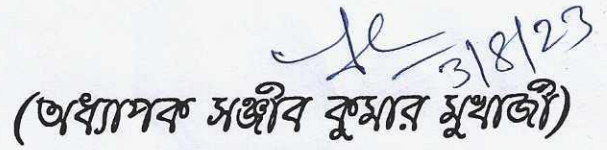 3/8/23
(অধ্যাপক সঞ্জীব কুমার মুখার্জী)